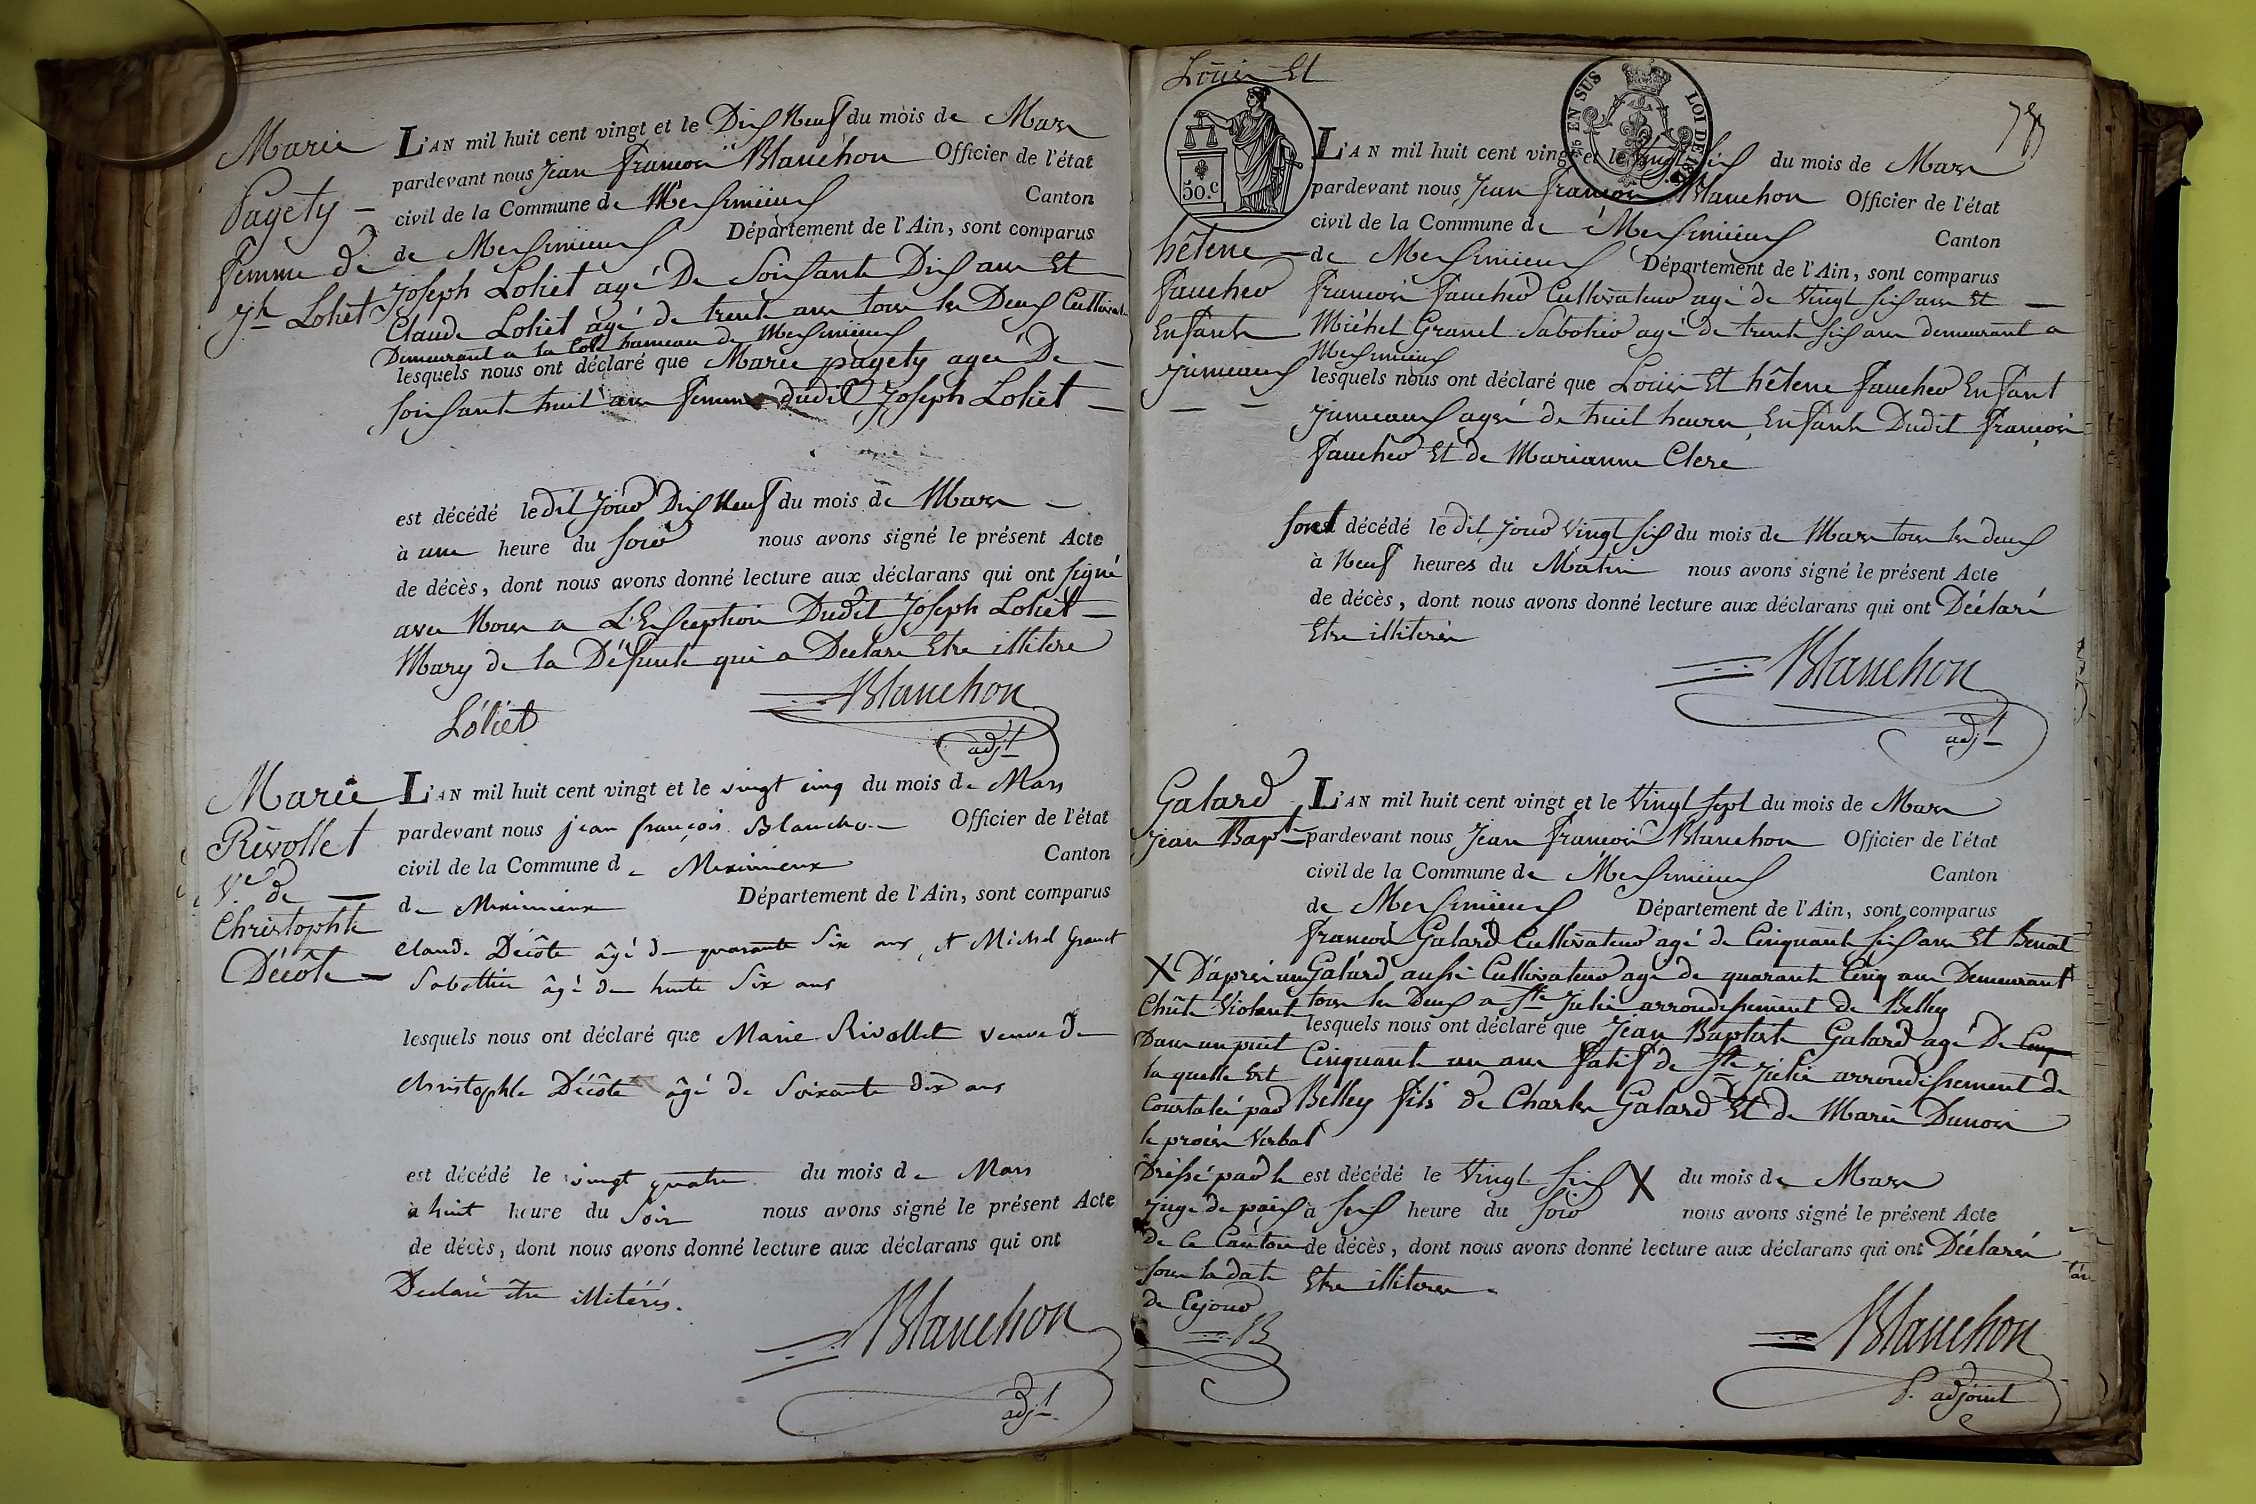 Marie
Pagety -
femme de
Jh Loliet
L'AN mil huit cent vingt et le Dix Neuf du mois de Mars
pardevant nous jean francois Blanchon Officier de l'état
civil de la Commune de Meximieux Canton
de Meximieux Département de l'Ain, sont comparus
Joseph Loliet agé De Soixante Dix ans Et
Claude Loliet agé de trente ans tous les Deux Cultivat
Demeurant a la hameau de Meximieux
lesquels nous ont déclaré que Marie pagety ageé De -
soixante huit ans femme dudit Joseph Loliet -
est décédé le dit Jour Dix Neuf du mois de Mars -
à une heure du soir nous avons signé le présent Acte
de décès, dont nous avons donné lecture aux déclarans qui ont signé
avec Nous a L'Exception Dudit Joseph Loliet -
Mary de la Défunte qui a Declare Etre illitere
Blanchon
Loliet
adjt
Marie
Rivollet
Ve de
Christophle
Décôte
L'AN mil huit cent vingt et le vingt cinq du mois de Mars
pardevant nous jean françois Blancho Officier de l'état
civil de la Commune de Meximieux Canton
de Meximieux Département de l'Ain, sont comparus
Claude Décôte âgé de quarante Six ans, et Michel Granet
Sabottier âgé de trente Six ans
lesquels nous ont déclaré que Marie Rivollet veuve de
Christophle Décôte âgé de Soixante dix ans
est décédé le vingt quatre du mois de Mars
à huit heure du Soir nous avons signé le présent Acte
de décès, dont nous avons donné lecture aux déclarans qui ont
Declaré être illitérés.
Blanchon
adjt
Louis Et
50.c
25 EN SUS LOI DE 1816
hêlene
faucheo
Enfants
jumeaux
L'AN mil huit cent vingt et le vingt six du mois de Mars
pardevant nous Jean francois Blanchon Officier de l'état
civil de la Commune de Meximieux Canton
de Meximieux Département de l'Ain, sont comparus
francois faucheo Cultivateur agé de Vingt six ans Et -
Michel Granet Sabotier agé de trente six ans demeurant a
Meximieux
lesquels nous ont déclaré que Louis Et hêlene faucheo Enfant
jumeaux agés de huit heures, Enfants Dudit francois
faucheo Et de Marianne Clere
sont décédé le dit jour Vingt six du mois de Mars tous les deux
à Neuf heures du Matin nous avons signé le présent Acte
de décès, dont nous avons donné lecture aux déclarans qui ont Déclaré
Etre illiterés
Blanchon
adjt
Galard
jean Bapt
L'AN mil huit cent vingt et le Vingt sept du mois de Mars
pardevant nous Jean francois Blanchon Officier de l'état
civil de la Commune de Meximieux Canton
de Meximieux Département de l'Ain, sont comparus
francois Galard Cultivateur agé de Cinquante six ans Et Benoit
Galard aussi Cultivateur agé de quarante Cinq ans Demeurant
tous les Deux a Ste Julie arrondissement de Belley
lesquels nous ont déclaré que Jean Baptiste Galard agé De Cinq
Cinquante un ans Natif de Ste Julie arrondissement de
Belley fils de Charles Galard Et de Marie Dunois
est décédé le Vingt six X du mois de Mars
à six heure du soir nous avons signé le présent Acte
de décès, dont nous avons donné lecture aux déclarans qui ont Déclarés
Etre illiteres.
X D'après une
Chûte Violent
Dans un puit
la quelle Est
Constateé par
le procès Verbal
Dréssé par le
juge de paix
de Ce Canton
sous la date
de Cejour
B
Blanchon
P. adjoint